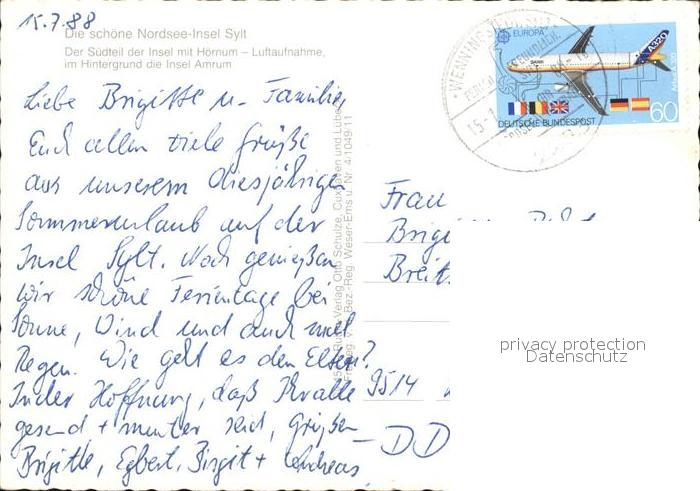 15.7.88
Die schöne Nordsee-Insel Sylt
Der Südteil der Insel mit Hörnum – Luftaufnahme,
im Hintergrund die Insel Amrum
Liebe Brigitte u. Familie,
Euch allen viele Grüße
aus unserem diesjährigen
Sommerurlaub auf der
Insel Sylt. Noch genießen
wir schöne Ferientage bei
Sonne, Wind und auch mal
Regen. Wie geht es den Eltern?
In der Hoffnung, daß Ihr alle
gesund + munter seid, grüßen
Brigitte, Egbert, Birgit + Andreas
Verlag Otto Schulze, Cuxhaven und
Bez.-Reg. Weser-Ems u. Nr. 4/1049/11
EUROPA
A320
DEUTSCHE BUNDESPOST
60
WENNINGSTEDT
Frau
Brigi
Breit
9514
DD
privacy protection
Datenschutz